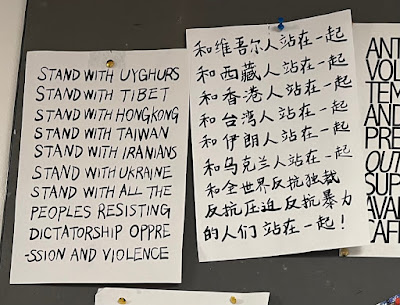 STAND WITH UYGHURS
STAND WITH TIBET
STAND WITH HONGKONG
STAND WITH TAIWAN
STAND WITH IRANIANS
STAND WITH UKRAINE
STAND WITH ALL THE
PEOPLES RESISTING
DICTATORSHIP OPPRE
-SSION AND VIOLENCE
和维吾尔人站在一起
和西藏人站在一起
和香港人站在一起
和台湾人站在一起
和伊朗人站在一起
和乌克兰人站在一起
和全世界反抗独裁
反抗压迫反抗暴力
的人们站在一起！
ANT
VOL
TEM
AND
PRE
OUT
SUP
AVAI
CAFE